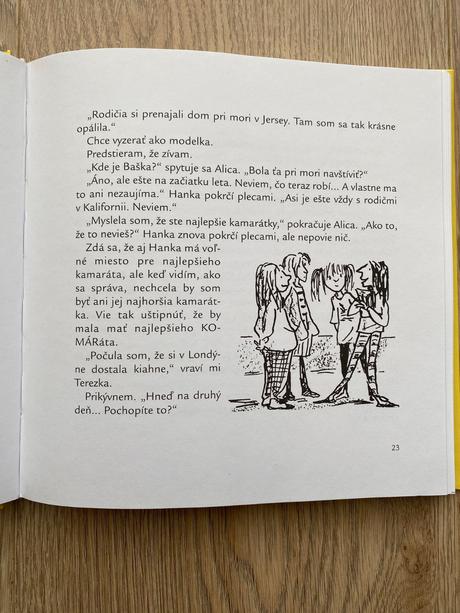 „Rodičia si prenajali dom pri mori v Jersey. Tam som sa tak krásne
opálila.“
Chce vyzerať ako modelka.
Predstieram, že zívam.
„Kde je Baška?“ spytuje sa Alica. „Bola ťa pri mori navštíviť?“
„Áno, ale ešte na začiatku leta. Neviem, čo teraz robí... A vlastne ma
to ani nezaujíma.“ Hanka pokrčí plecami. „Asi je ešte vždy s rodičmi
v Kalifornii. Neviem.“
„Myslela som, že ste najlepšie kamarátky,“ pokračuje Alica. „Ako to,
že to nevieš?“ Hanka znova pokrčí plecami, ale nepovie nič.
Zdá sa, že aj Hanka má voľ-
né miesto pre najlepšieho
kamaráta, ale keď vidím, ako
sa správa, nechcela by som
byť ani jej najhoršia kamarát-
ka. Vie tak uštipnúť, že by
mala mať najlepšieho KO-
MÁRata.
„Počula som, že si v Londý-
ne dostala kiahne,“ vraví mi
Terezka.
Prikývnem. „Hneď na druhý
deň... Pochopíte to?“
23